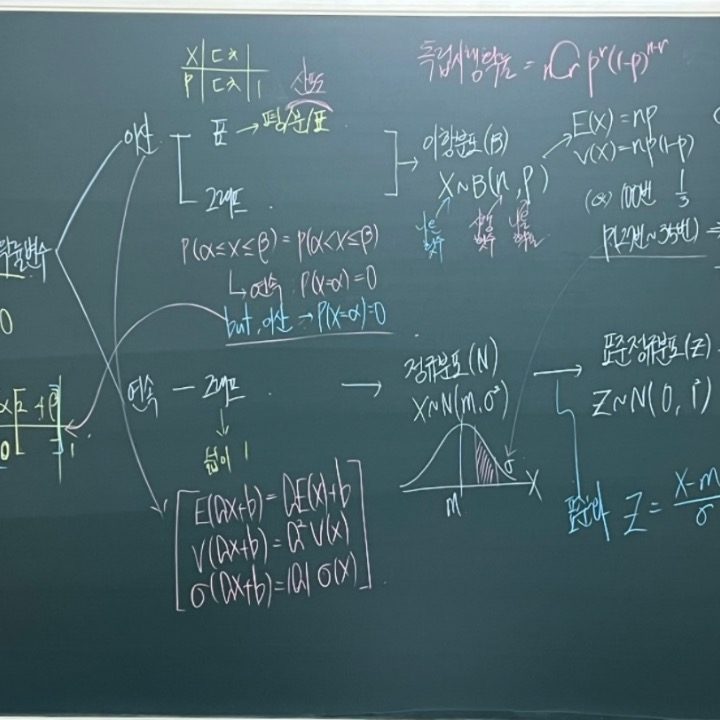 X
P 1
독립시행확률 = nCr p^r(1-p)^(n-r)
이산
표 → 평/분/표
그래프
이항분포(B)
X~B(n, p)
나온 횟수
시행 횟수
나올 확률
E(X) = np
V(X) = np(1-p)
(ex) 100번 1/3
P(20번~35번) ⇒
확률변수
P(α≤X≤β) = P(α<X≤β)
↳ 연속. P(X=α)=0
but, 이산 → P(X=α)=0
연속 — 그래프 →
↓
넓이 1
정규분포(N)
X~N(m, σ²)
m
X
→ 표준정규분포(Z)
Z~N(0, 1²)
표준화 Z = X-m/σ
E(aX+b) = aE(X)+b
V(aX+b) = a²V(X)
σ(aX+b) = |a| σ(X)